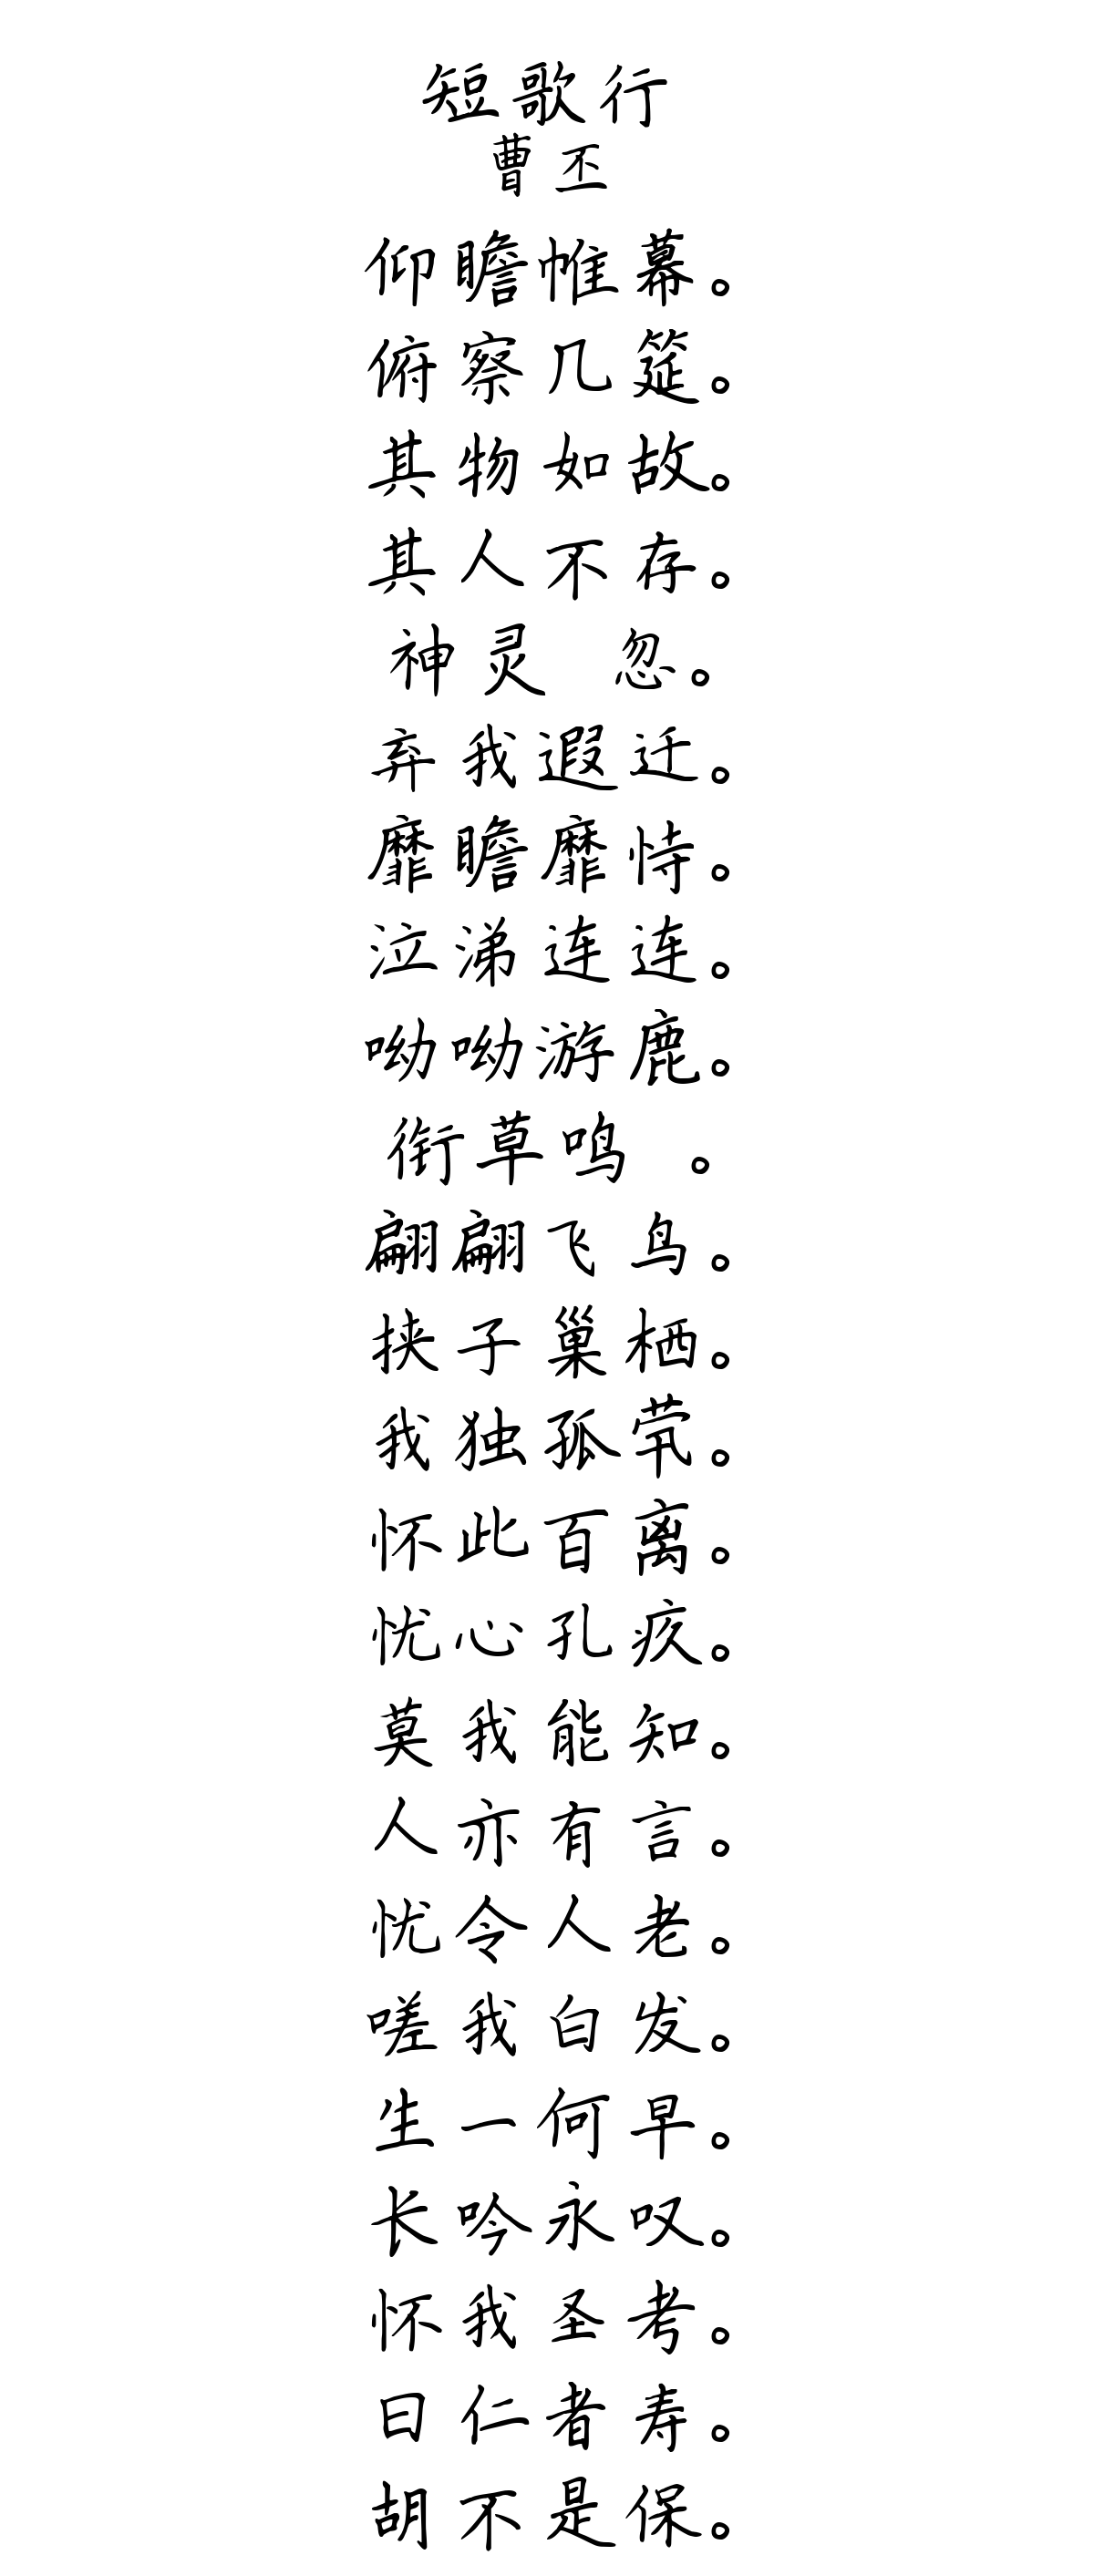 短歌行
曹丕
仰瞻帷幕。
俯察几筵。
其物如故。
其人不存。
神灵 忽。
弃我遐迁。
靡瞻靡恃。
泣涕连连。
呦呦游鹿。
衔草鸣 。
翩翩飞鸟。
挟子巢栖。
我独孤茕。
怀此百离。
忧心孔疚。
莫我能知。
人亦有言。
忧令人老。
嗟我白发。
生一何早。
长吟永叹。
怀我圣考。
曰仁者寿。
胡不是保。